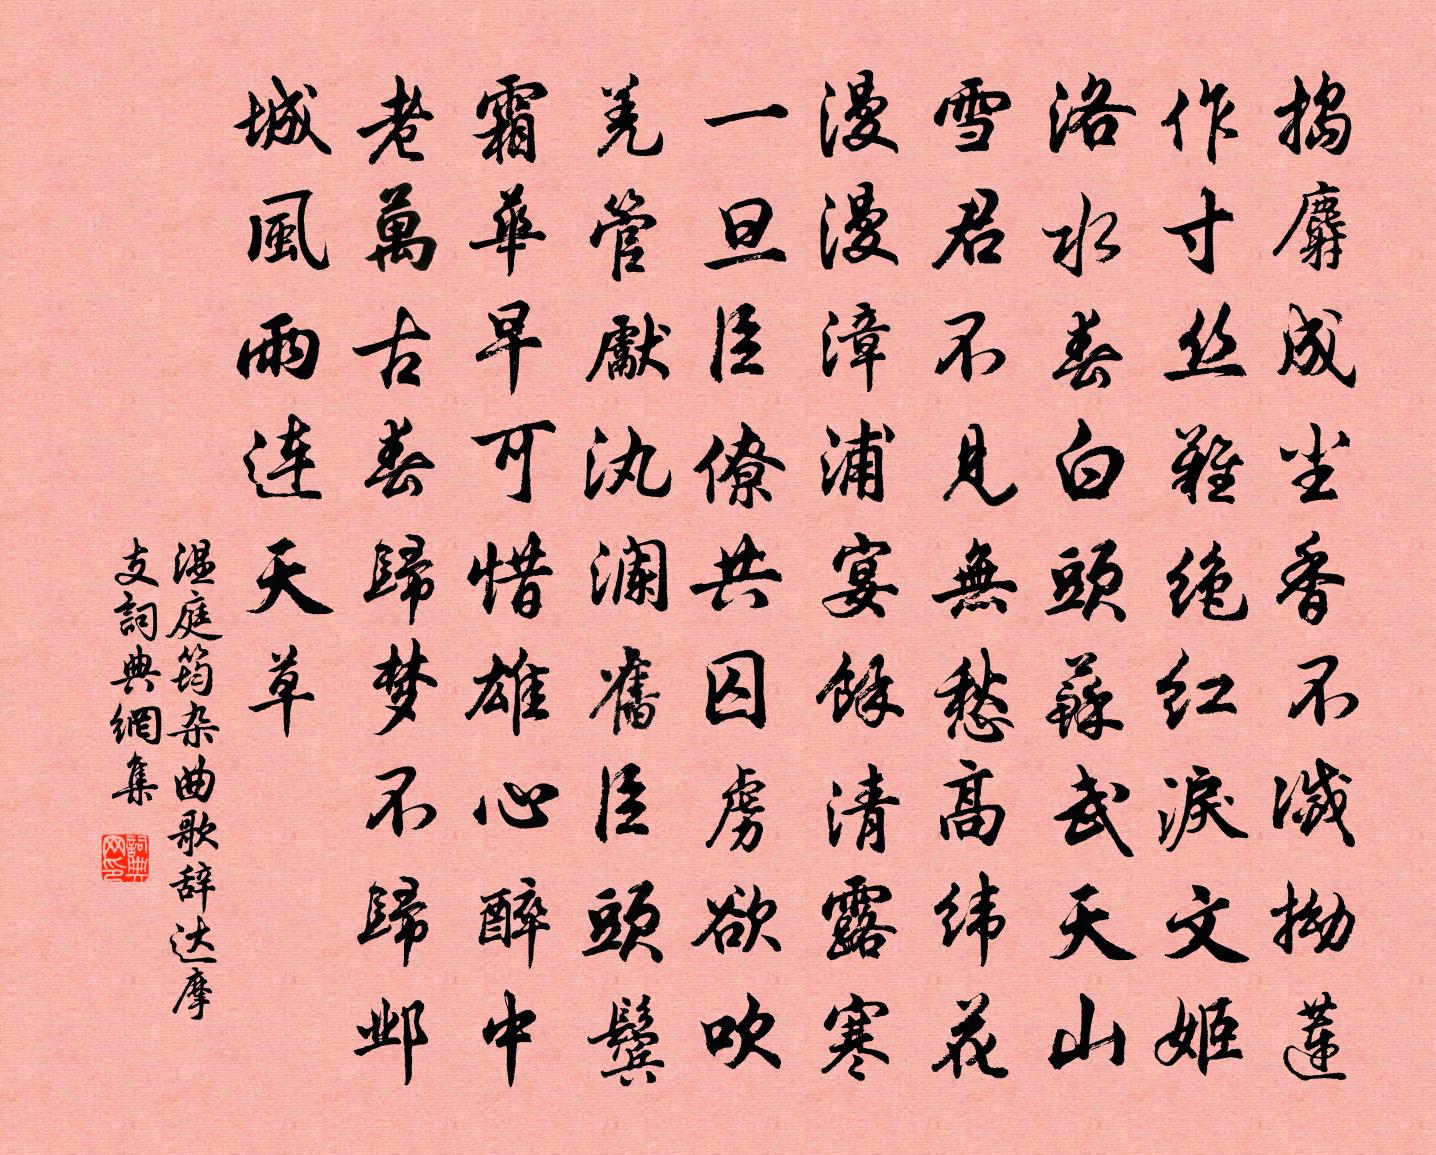 搗麝成尘香不滅拗蓮
作寸丝難绝红淚文姬
洛水春白頭蘇武天山
雪君不見無愁高纬花
漫漫漳浦宴餘清露寒
一旦臣僚共囚虏欲吹
羌管獻汍澜舊臣頭鬢
霜華早可惜雄心醉中
老萬古春歸梦不歸邺
城風雨连天草
温庭筠杂曲歌辞达摩
支詞典網集
詞典网印